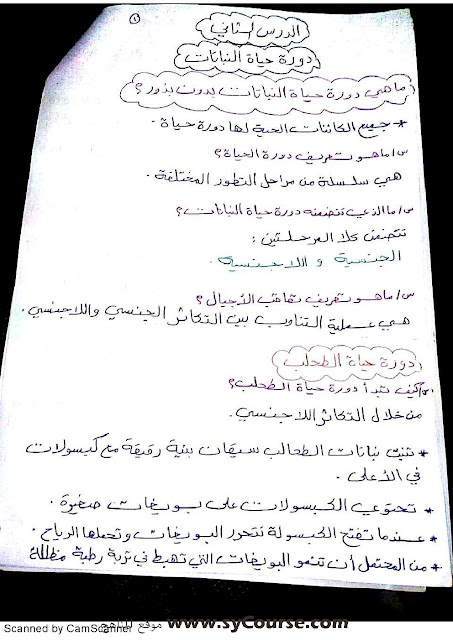 ١
الدرس الثاني
دورة حياة النباتات
ما هي دورة حياة النباتات بدون بذور؟
* جميع الكائنات الحية لها دورة حياة.
س/ ما هو تعريف دورة الحياة؟
هي سلسلة من مراحل التطور المختلفة.
س/ ما الذي تتضمنه دورة حياة النباتات؟
تتضمن كلا المرحلتين:
الجنسية و اللاجنسية.
س/ ما هو تعريف تعاقب الأجيال؟
هي عملية التناوب بين التكاثر الجنسي واللاجنسي.
دورة حياة الطحلب
س/ كيف تبدأ دورة حياة الطحلب؟
من خلال التكاثر اللاجنسي.
* تنبت نباتات الطحالب سيقان بنية رقيقة مع كبسولات
في الأعلى.
* تحتوي الكبسولات على بويغات صغيرة.
* عندما تفتح الكبسولة تتحرر البويغات وتحملها الرياح.
* من المحتمل أن تنمو البويغات التي تهبط في تربة رطبة مظللة
Scanned by CamScanner
موقع المناهج www.syCourse.com